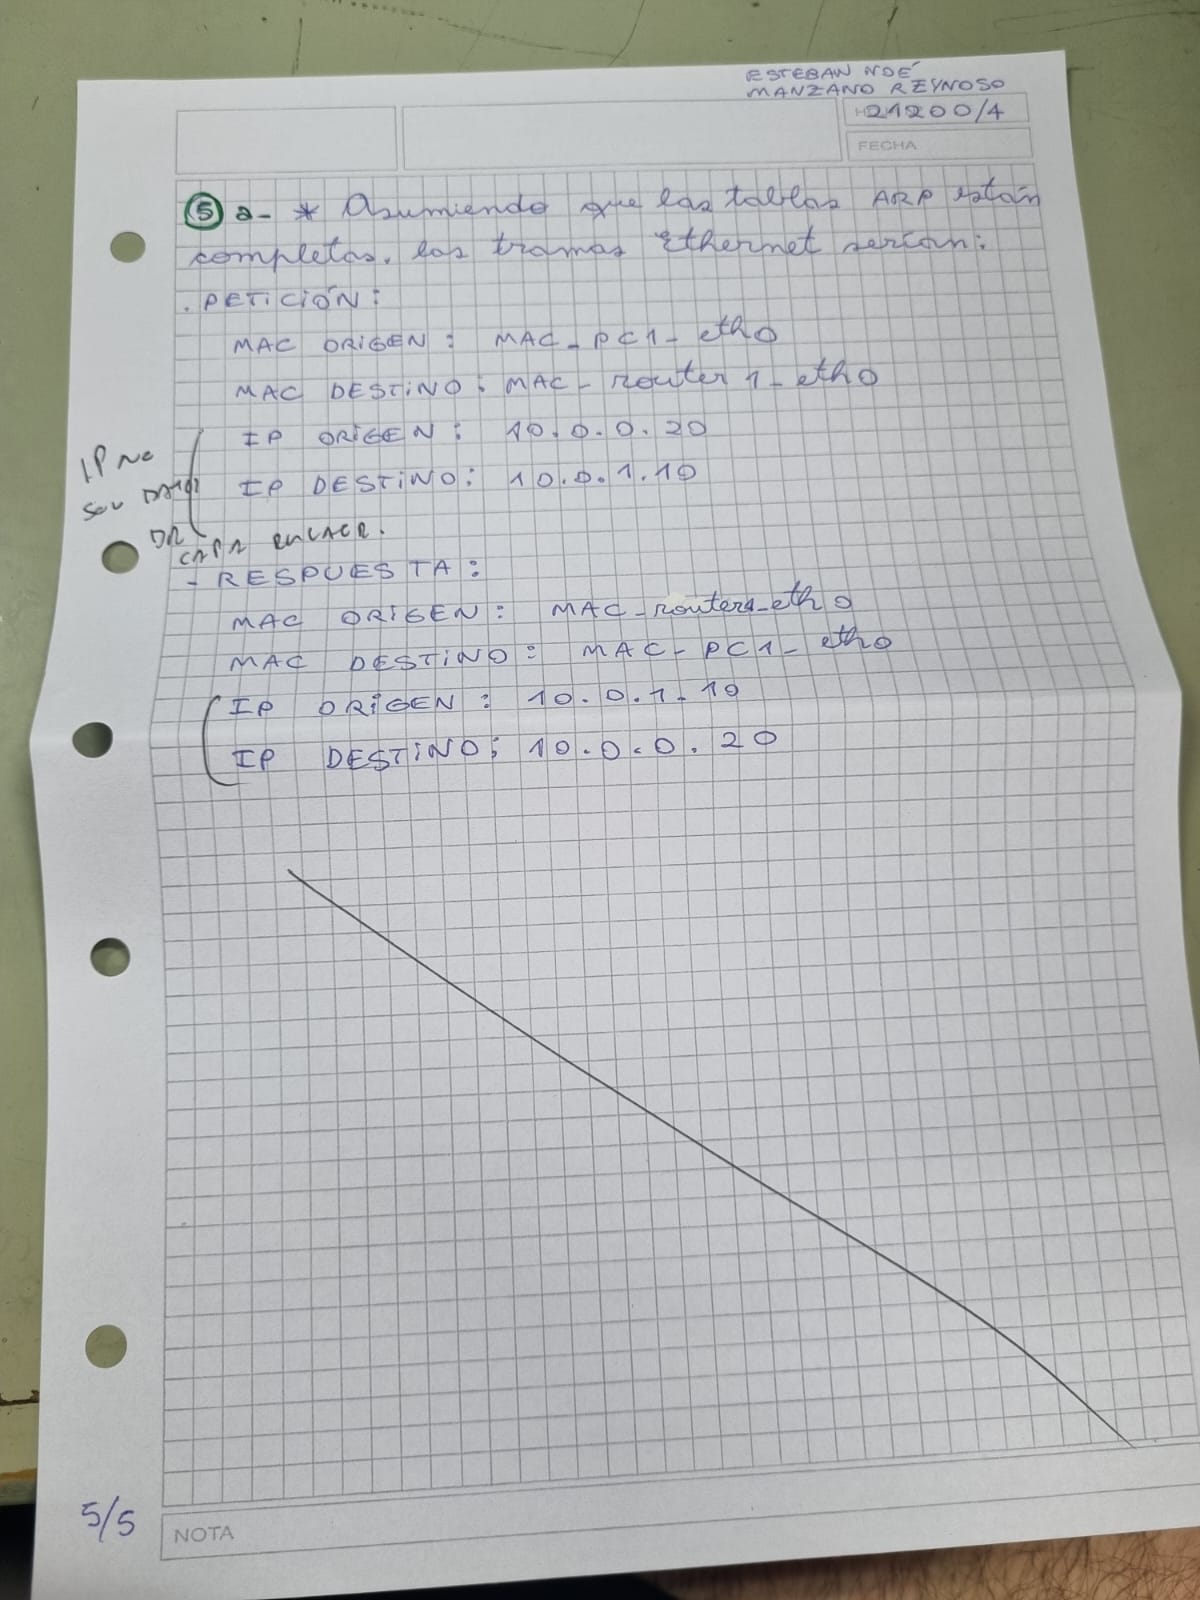 ESTEBAN NOÉ
MANZANO REYNOSO
21200/4
FECHA
5 a- * Asumiendo que las tablas ARP están
completas, las tramas Ethernet serían:
. PETICIÓN:
MAC ORIGEN: MAC_PC1_eth0
MAC DESTINO: MAC_router1_eth0
IP ORIGEN: 10.0.0.20
IP DESTINO: 10.0.1.10
IP NO
SON DATOS
DE
CAPA ENLACE.
- RESPUESTA:
MAC ORIGEN: MAC_router1_eth0
MAC DESTINO: MAC_PC1_eth0
IP ORIGEN: 10.0.1.10
IP DESTINO: 10.0.0.20
5/5
NOTA